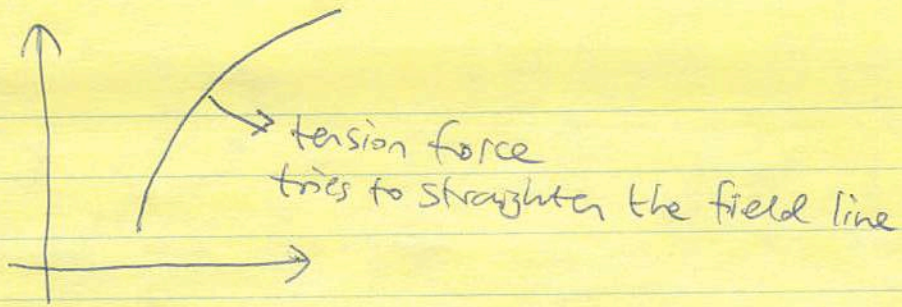 tension force
tries to straighten the field line